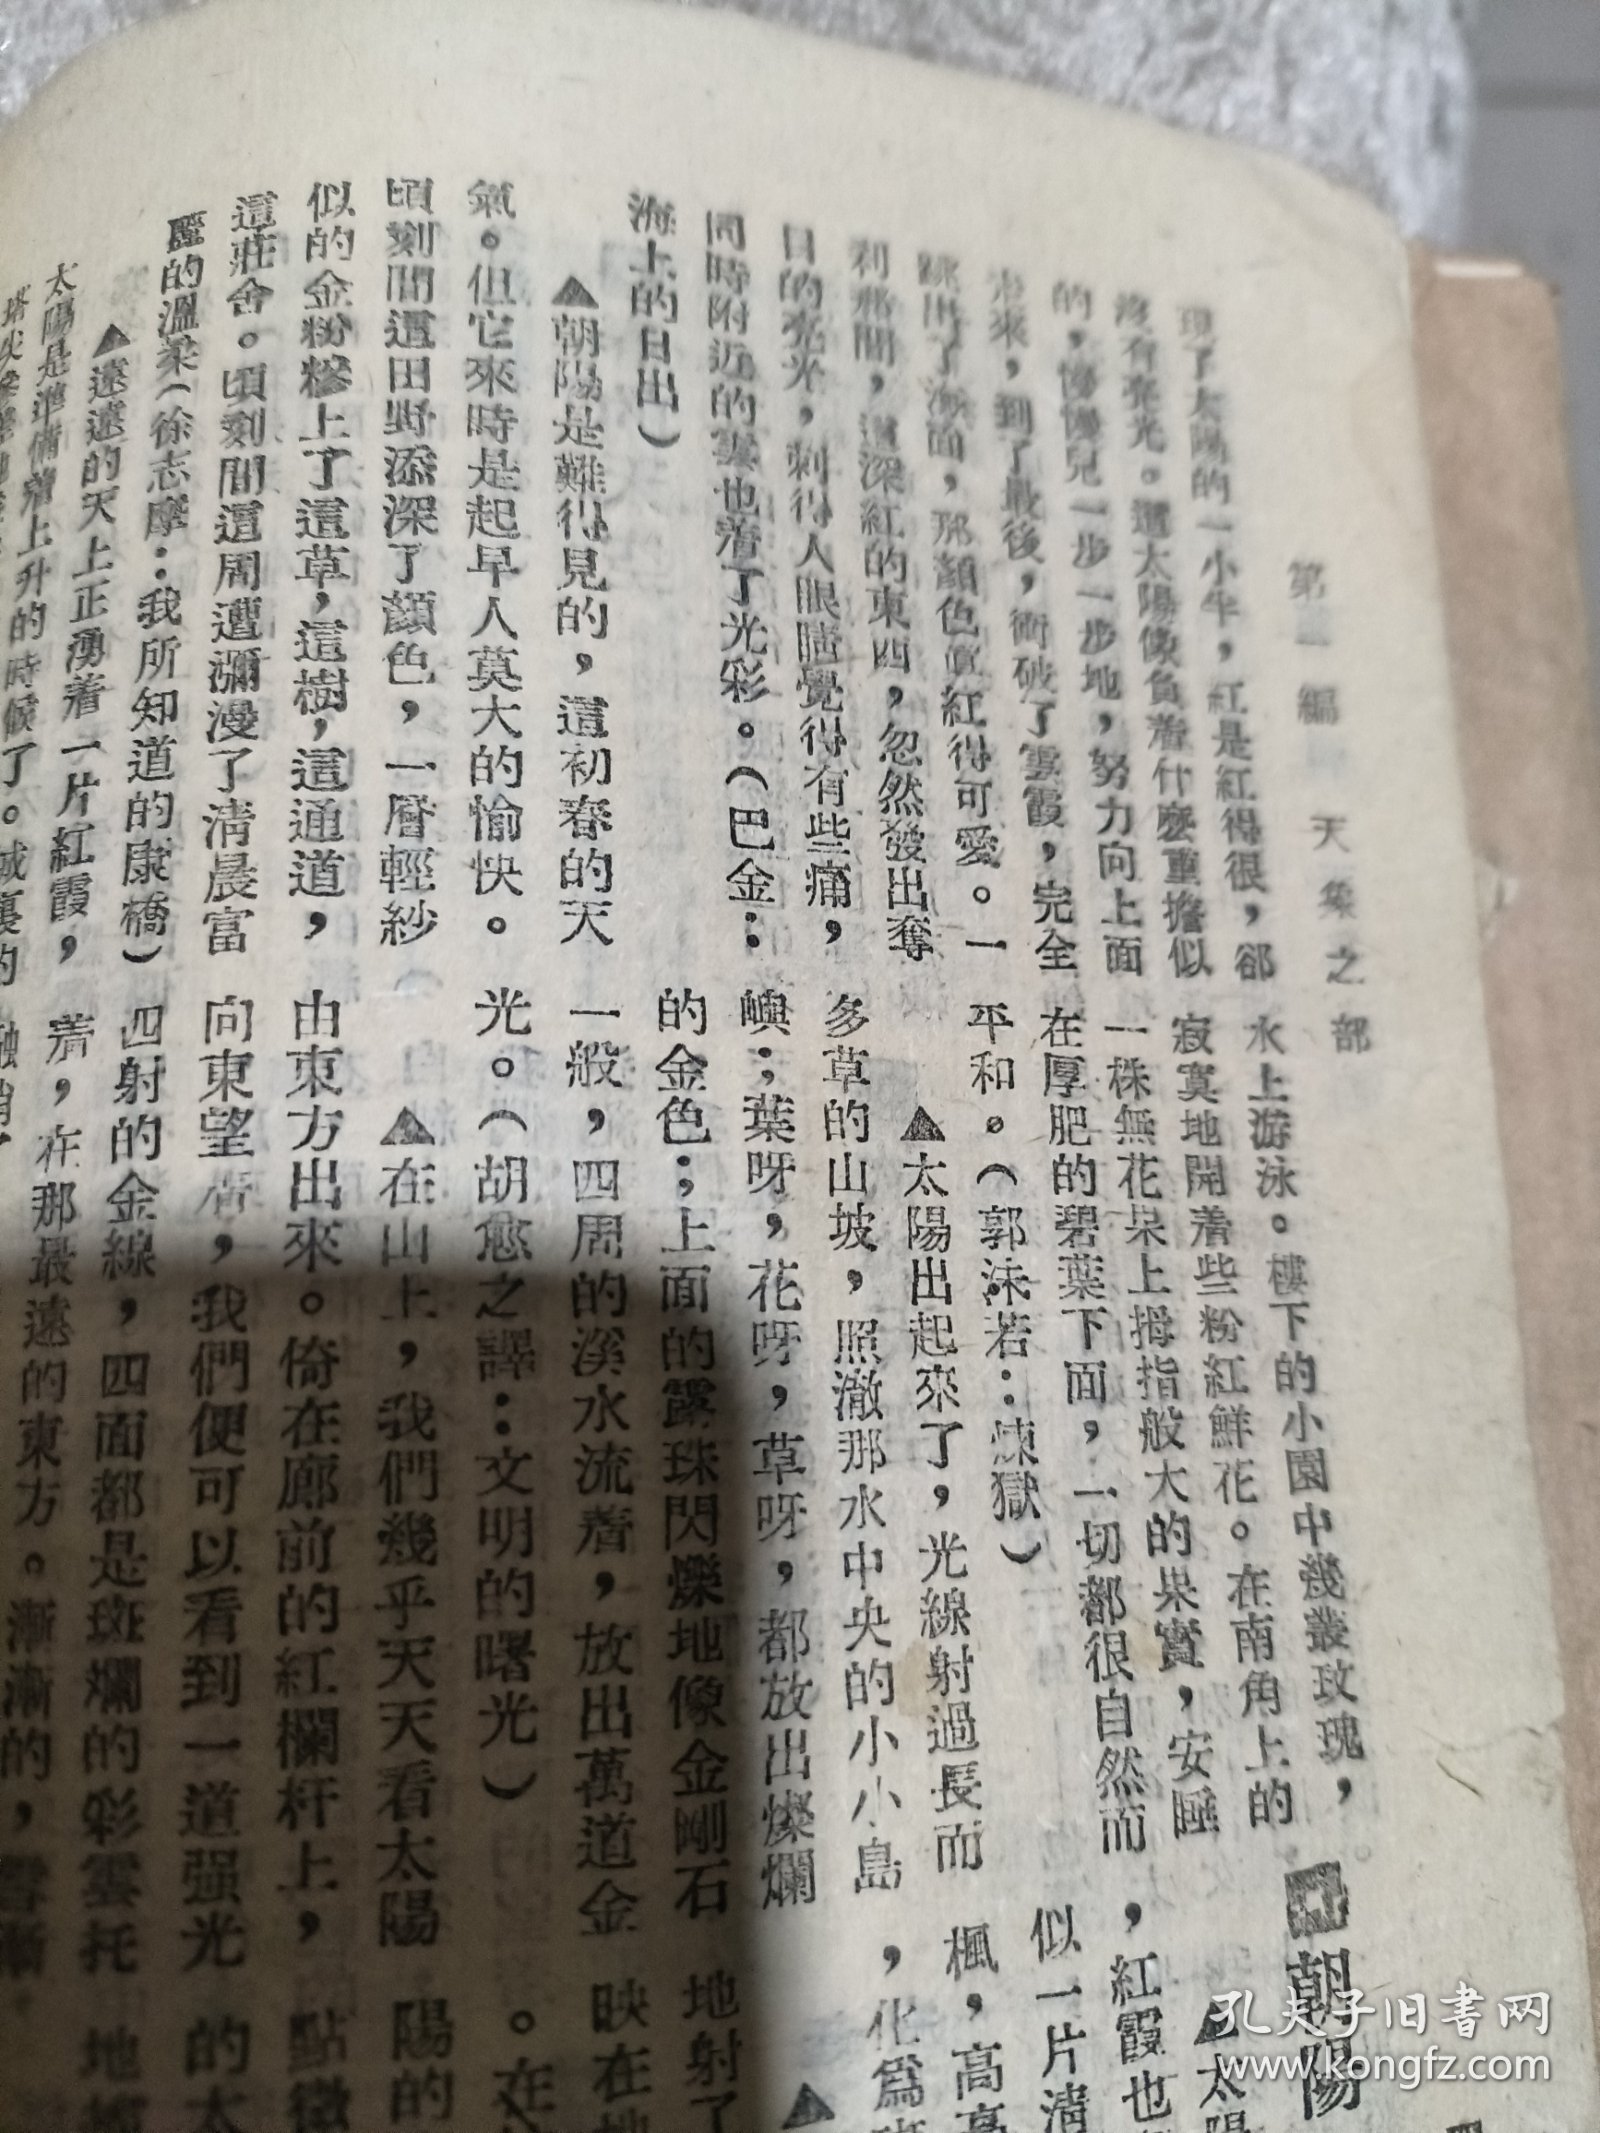 第一編 天象之部
現了太陽的一小半，紅是紅得很，卻
沒有亮光。這太陽像負着什麼重擔似
的，慢慢兒一步一步地，努力向上面
來，到了最後，衝破了雲霞，完全
跳出了海面，那顏色真紅得可愛。一
刹那間，這深紅的東西，忽然發出奪
目的亮光，刺得人眼睛覺得有些痛，
同時附近的雲也着了光彩。（巴金：
海上的日出）
▲朝陽是難得見的，這初春的天
氣。但它來時是起早人莫大的愉快。
頃刻間這田野添深了顏色，一層輕紗
似的金粉糝上了這草，這樹，這通道，
這莊舍。頃刻間這周遭瀰漫了清晨富
麗的溫柔（徐志摩：我所知道的康橋）
▲遠遠的天上正湧着一片紅霞，
太陽是準備着上升的時候了。城裏的
水上游泳。樓下的小園中幾叢玫瑰，
寂寞地開着些粉紅鮮花。在南角上的
一株無花果上拇指般大的果實，安睡
在厚肥的碧葉下面，一切都很自然而
平和。（郭沫若：煉獄）
▲太陽出起來了，光線射過長而
多草的山坡，照澈那水中央的小小島
嶼；葉呀，花呀，草呀，都放出燦爛
的金色；上面的露珠閃爍地像金剛石
一般，四周的溪水流着，放出萬道金
光。（胡愈之譯：文明的曙光）
▲在山上，我們幾乎天天看太陽
由東方出來。倚在廊前的紅欄杆上，
向東望着，我們便可以看到一道强光
四射的金線，四面都是斑斕的彩雲托
着，在那最遠的東方。漸漸的，雲漸
朝陽
▲太陽
，紅霞也
似一片清
楓，高高
，化爲
▲
地射了
映在地
。在
陽的
點綴
的太
地
孔夫子旧書网
www.kongfz.com